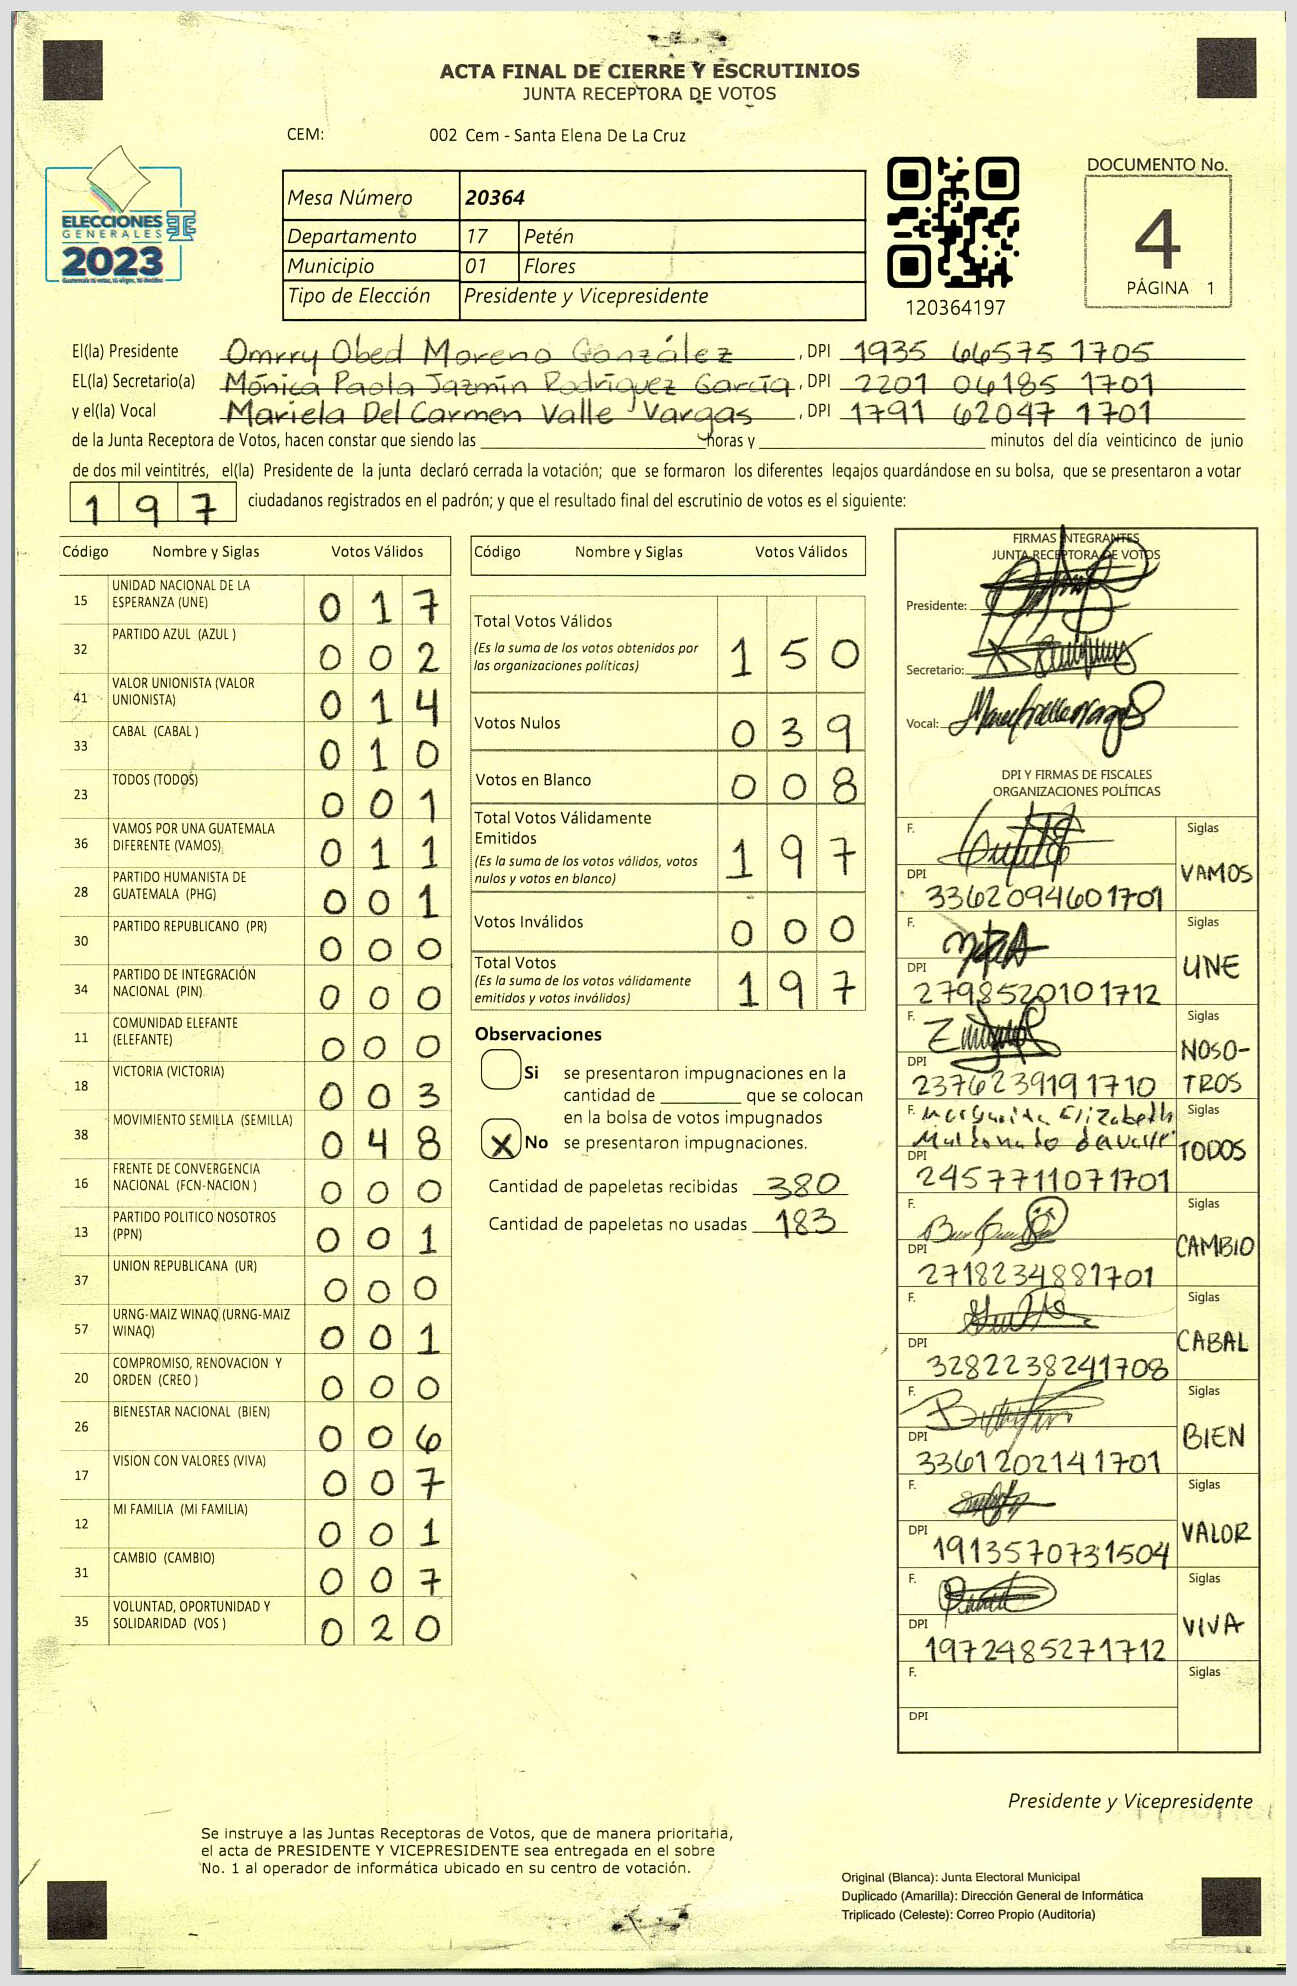 ACTA FINAL DE CIERRE Y ESCRUTINIOS
JUNTA RECEPTORA DE VOTOS
CEM: 002 Cem - Santa Elena De La Cruz
ELECCIONES
GENERALES
2023
Mesa Número 20364
Departamento 17 Petén
Municipio 01 Flores
Tipo de Elección Presidente y Vicepresidente
120364197
DOCUMENTO No.
4
PÁGINA 1
El(la) Presidente Omrry Obed Moreno González, DPI 1935 66575 1705
EL(la) Secretario(a) Mónica Paola Jazmín Rodríguez García, DPI 2201 06185 1701
y el(la) Vocal Mariela Del Carmen Valle Vargas, DPI 1791 62047 1701
de la Junta Receptora de Votos, hacen constar que siendo las horas y minutos del día veinticinco de junio
de dos mil veintitrés, el(la) Presidente de la junta declaró cerrada la votación; que se formaron los diferentes legajos guardándose en su bolsa, que se presentaron a votar
197 ciudadanos registrados en el padrón; y que el resultado final del escrutinio de votos es el siguiente:
Código Nombre y Siglas Votos Válidos
15 UNIDAD NACIONAL DE LA ESPERANZA (UNE) 017
32 PARTIDO AZUL (AZUL ) 002
41 VALOR UNIONISTA (VALOR UNIONISTA) 014
33 CABAL (CABAL ) 010
23 TODOS (TODOS) 001
36 VAMOS POR UNA GUATEMALA DIFERENTE (VAMOS) 011
28 PARTIDO HUMANISTA DE GUATEMALA (PHG) 001
30 PARTIDO REPUBLICANO (PR) 000
34 PARTIDO DE INTEGRACIÓN NACIONAL (PIN) 000
11 COMUNIDAD ELEFANTE (ELEFANTE) 000
18 VICTORIA (VICTORIA) 003
38 MOVIMIENTO SEMILLA (SEMILLA) 048
16 FRENTE DE CONVERGENCIA NACIONAL (FCN-NACION ) 000
13 PARTIDO POLITICO NOSOTROS (PPN) 001
37 UNION REPUBLICANA (UR) 000
57 URNG-MAIZ WINAQ (URNG-MAIZ WINAQ) 001
20 COMPROMISO, RENOVACION Y ORDEN (CREO ) 000
26 BIENESTAR NACIONAL (BIEN) 006
17 VISION CON VALORES (VIVA) 007
12 MI FAMILIA (MI FAMILIA) 001
31 CAMBIO (CAMBIO) 007
35 VOLUNTAD, OPORTUNIDAD Y SOLIDARIDAD (VOS ) 020
Código Nombre y Siglas Votos Válidos
Total Votos Válidos 150
(Es la suma de los votos obtenidos por
las organizaciones políticas)
Votos Nulos 039
Votos en Blanco 008
Total Votos Válidamente
Emitidos 197
(Es la suma de los votos válidos, votos
nulos y votos en blanco)
Votos Inválidos 000
Total Votos 197
(Es la suma de los votos válidamente
emitidos y votos inválidos)
Observaciones
Si se presentaron impugnaciones en la
cantidad de que se colocan
en la bolsa de votos impugnados
X No se presentaron impugnaciones.
Cantidad de papeletas recibidas 380
Cantidad de papeletas no usadas 183
FIRMAS INTEGRANTES
JUNTA RECEPTORA DE VOTOS
Presidente:
Secretario:
Vocal:
DPI Y FIRMAS DE FISCALES
ORGANIZACIONES POLÍTICAS
F. Siglas
VAMOS
DPI 3362094601701
F. Siglas
UNE
DPI 2798520101712
F. Siglas
NOSO-
TROS
DPI 2376239191710
F. Margarita Elizabeth Siglas
Maldonado TODOS
DPI 2457711071701
F. Siglas
CAMBIO
DPI 2718234881701
F. Siglas
CABAL
DPI 3282238241708
F. Siglas
BIEN
DPI 3361202141701
F. Siglas
VALOR
DPI 1913570731504
F. Siglas
VIVA
DPI 1972485271712
F. Siglas
DPI
Presidente y Vicepresidente
Se instruye a las Juntas Receptoras de Votos, que de manera prioritaria,
el acta de PRESIDENTE Y VICEPRESIDENTE sea entregada en el sobre
No. 1 al operador de informática ubicado en su centro de votación.
Original (Blanca): Junta Electoral Municipal
Duplicado (Amarilla): Dirección General de Informática
Triplicado (Celeste): Correo Propio (Auditoria)